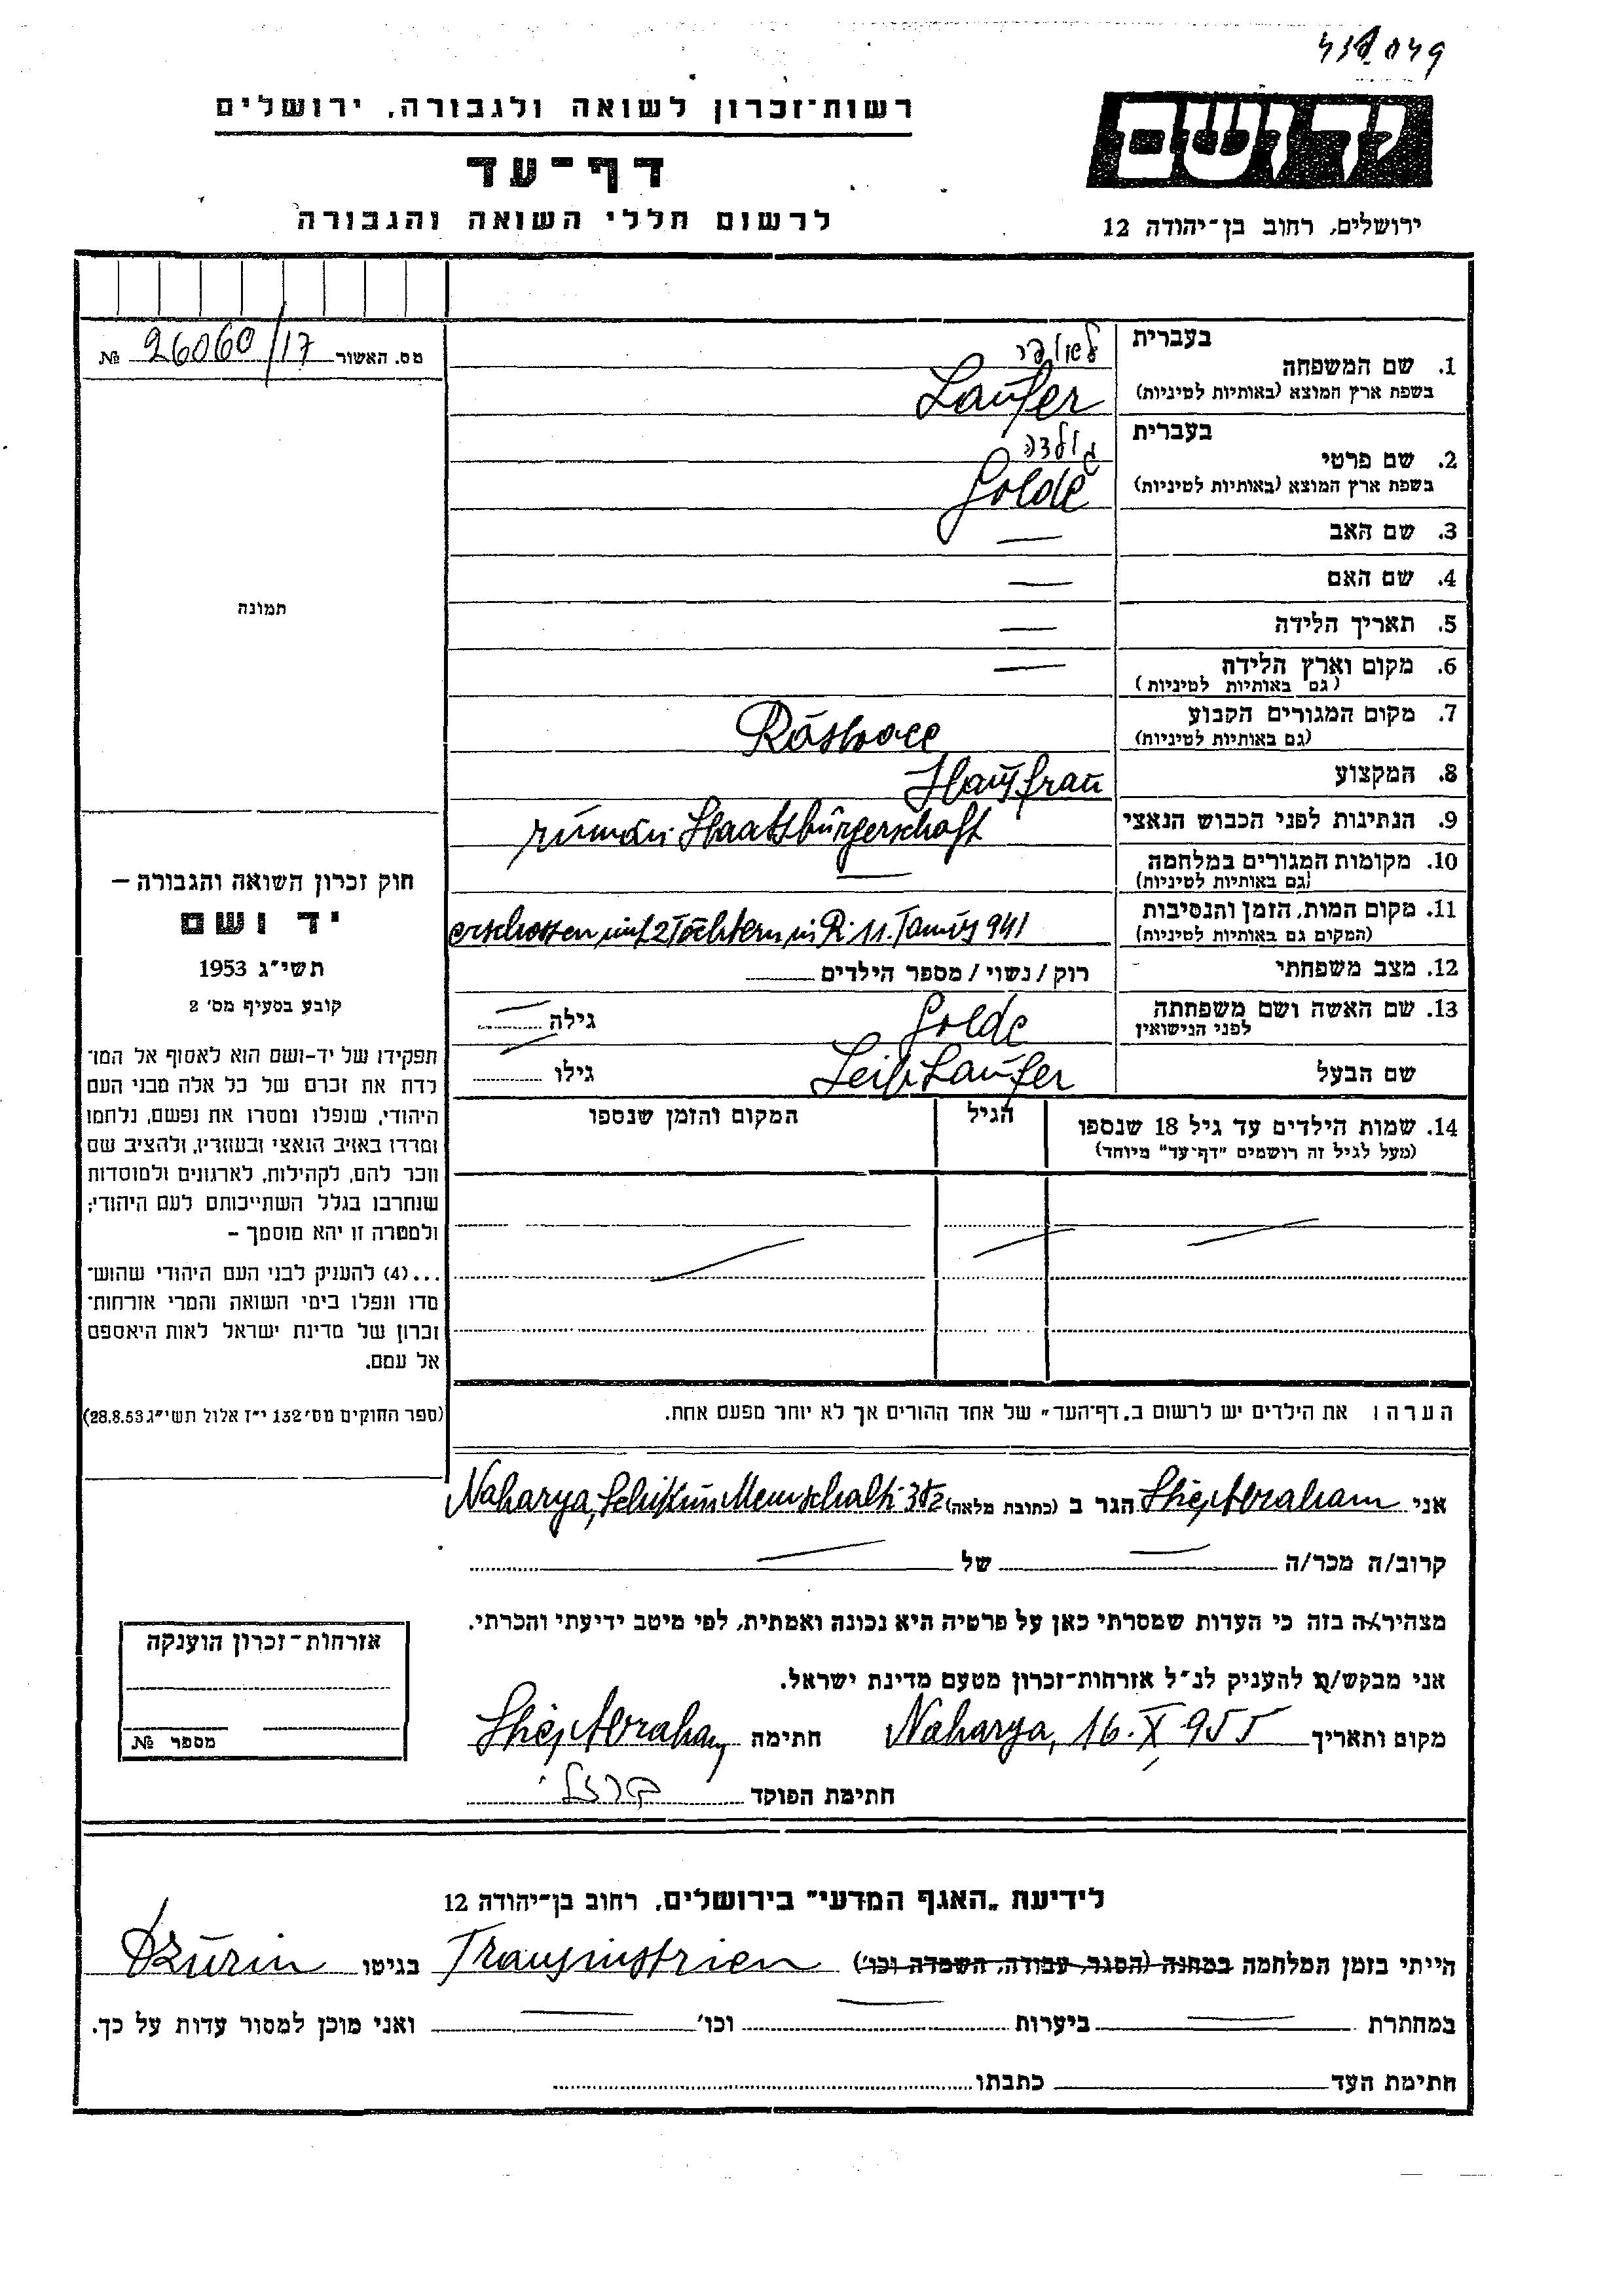 רשות־זכרון לשואה ולגבורה, ירושלים
דף־עד
לרשום חללי השואה והגבורה
יד ושם
ירושלים, רחוב בן־יהודה 12
מס. האשור 26060/17 №
תמונה
חוק זכרון השואה והגבורה –
יד ושם
תשי״ג 1953
קובע בסעיף מס׳ 2
תפקידו של יד-ושם הוא לאסוף אל המו־
לדת את זכרם של כל אלה מבני העם
היהודי, שנפלו ומסרו את נפשם, נלחמו
ומרדו באויב הנאצי ובעוזריו, ולהציב שם
וזכר להם, לקהילות, לארגונים ולמוסדות
שנחרבו בגלל השתייכותם לעם היהודי;
ולמטרה זו יהא מוסמך –
...(4) להעניק לבני העם היהודי שהוש־
מדו ונפלו בימי השואה והמרי אזרחות־
זכרון של מדינת ישראל לאות היאספם
אל עמם.
(ספר החוקים מס׳ 132 י״ז אלול תשי״ג 28.8.53)
1. שם המשפחה
בעברית
בשפת ארץ המוצא (באותיות לטיניות) Laufer
2. שם פרטי
בעברית גולדה
בשפת ארץ המוצא (באותיות לטיניות) Golde
3. שם האב —
4. שם האם —
5. תאריך הלידה —
6. מקום וארץ הלידה —
(גם באותיות לטיניות)
7. מקום המגורים הקבוע
(גם באותיות לטיניות)
8. המקצוע Hausfrau
9. הנתינות לפני הכבוש הנאצי rumän. Staatsbürgerschaft
10. מקומות המגורים במלחמה —
(גם באותיות לטיניות)
11. מקום המות, הזמן והנסיבות erschossen mit 2 Töchtern in R. 11. Tamus 941
(המקום גם באותיות לטיניות)
12. מצב משפחתי רוק/נשוי/מספר הילדים
13. שם האשה ושם משפחתה Golde גילה —
לפני הנישואין
שם הבעל Leib Laufer גילו —
14. שמות הילדים עד גיל 18 שנספו הגיל המקום והזמן שנספו
(מעל לגיל זה רושמים ״דף־עד״ מיוחד)
הערה: את הילדים יש לרשום ב„דף־העד״ של אחד ההורים אך לא יותר מפעם אחת.
אני Abraham הגר ב (כתובת מלאה) Naharya, Schikun
קרוב/ה מכר/ה — של —
מצהיר/ה בזה כי העדות שמסרתי כאן על פרטיה היא נכונה ואמתית, לפי מיטב ידיעתי והכרתי.
אני מבקש/ת להעניק לנ״ל אזרחות־זכרון מטעם מדינת ישראל.
מקום ותאריך Naharya, 16. X. 955 חתימה Abraham
חתימת הפוקד
אזרחות־זכרון הוענקה
מספר №
לידיעת „האגף המדעי״ בירושלים, רחוב בן־יהודה 12
הייתי בזמן המלחמה במחנה (הסגר, עבודה, השמדה וכו׳) Transnistrien בגיטו Dzurin
במחתרת — ביערות — וכו׳ — ואני מוכן למסור עדות על כך.
חתימת העד כתבתו